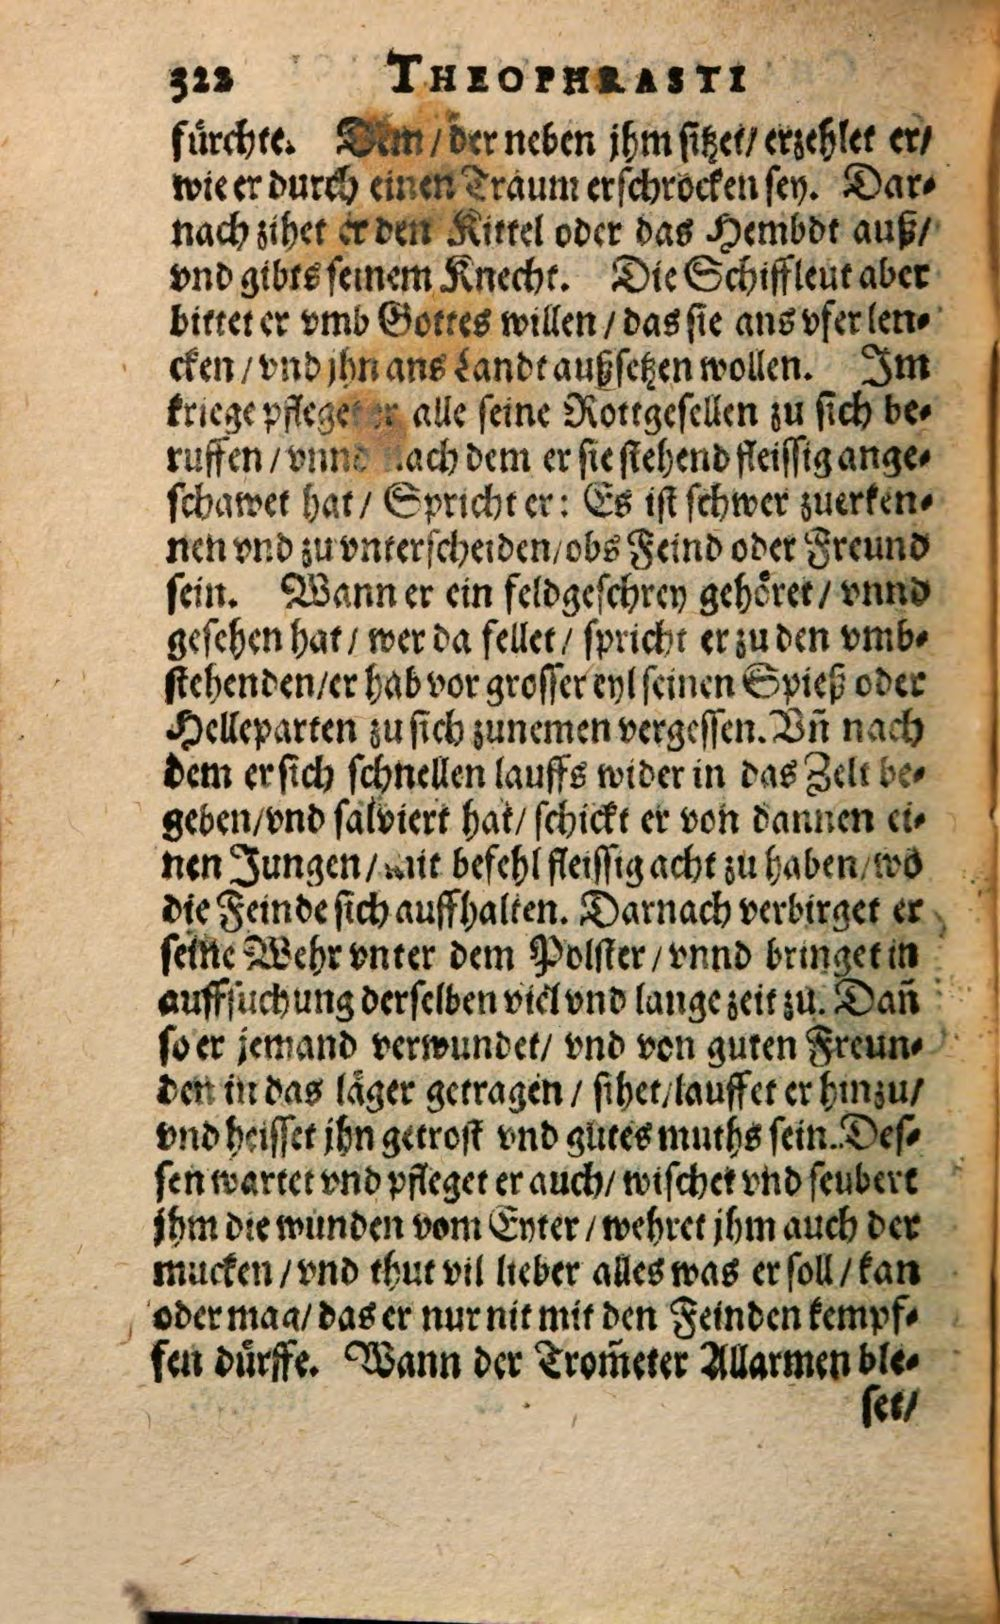 322 THEOPHRASTI
fürchte. Dem / der neben jhm sitzet / erzehlet er /
wie er durch einen Traum erschrocken sey. Dar-
nach zihet er den Kittel oder das Hembdt auß /
vnd gibts seinem Knecht. Die Schiffleut aber
bittet er vmb Gottes willen / das sie ans vfer len-
cken / vnd jhn ans Landt außsetzen wollen. Im
kriege pfleget er alle seine Rottgesellen zu sich be-
ruffen / vnnd nach dem er sie stehend fleissig ange-
schawet hat / Spricht er: Es ist schwer zuerken-
nen vnd zu vnterscheiden / obs Feind oder Freund
sein. Wann er ein feldgeschrey gehöret / vnnd
gesehen hat / wer da fellet / spricht er zu den vmb-
stehenden / er hab vor grosser eyl seinen Spieß oder
Helleparten zu sich zunemen vergessen. Vn̄ nach
dem er sich schnellen lauffs wider in das Zelt be-
geben / vnd salviert hat / schickt er von dannen ei-
nen Jungen / mit befehl fleissig acht zu haben / wo
die Feinde sich auffhalten. Darnach verbirget er
seine Wehr vnter dem Polster / vnnd bringet in
auffsuchung derselben viel vnd lange zeit zu. Dan̄
so er jemand verwundet / vnd von guten Freun-
den in das läger getragen / sihet / lauffet er hinzu /
vnd heisset jhn getrost vnd gutes muths sein. Des-
sen wartet vnd pfleget er auch / wischet vnd seubert
jhm die wunden vom Eyter / wehret jhm auch der
mucken / vnd thut vil lieber alles was er soll / kan
oder mag / das er nur nit mit den Feinden kempf-
fen dürffe. Wann der Trom̄eter Allarmen ble-
set /